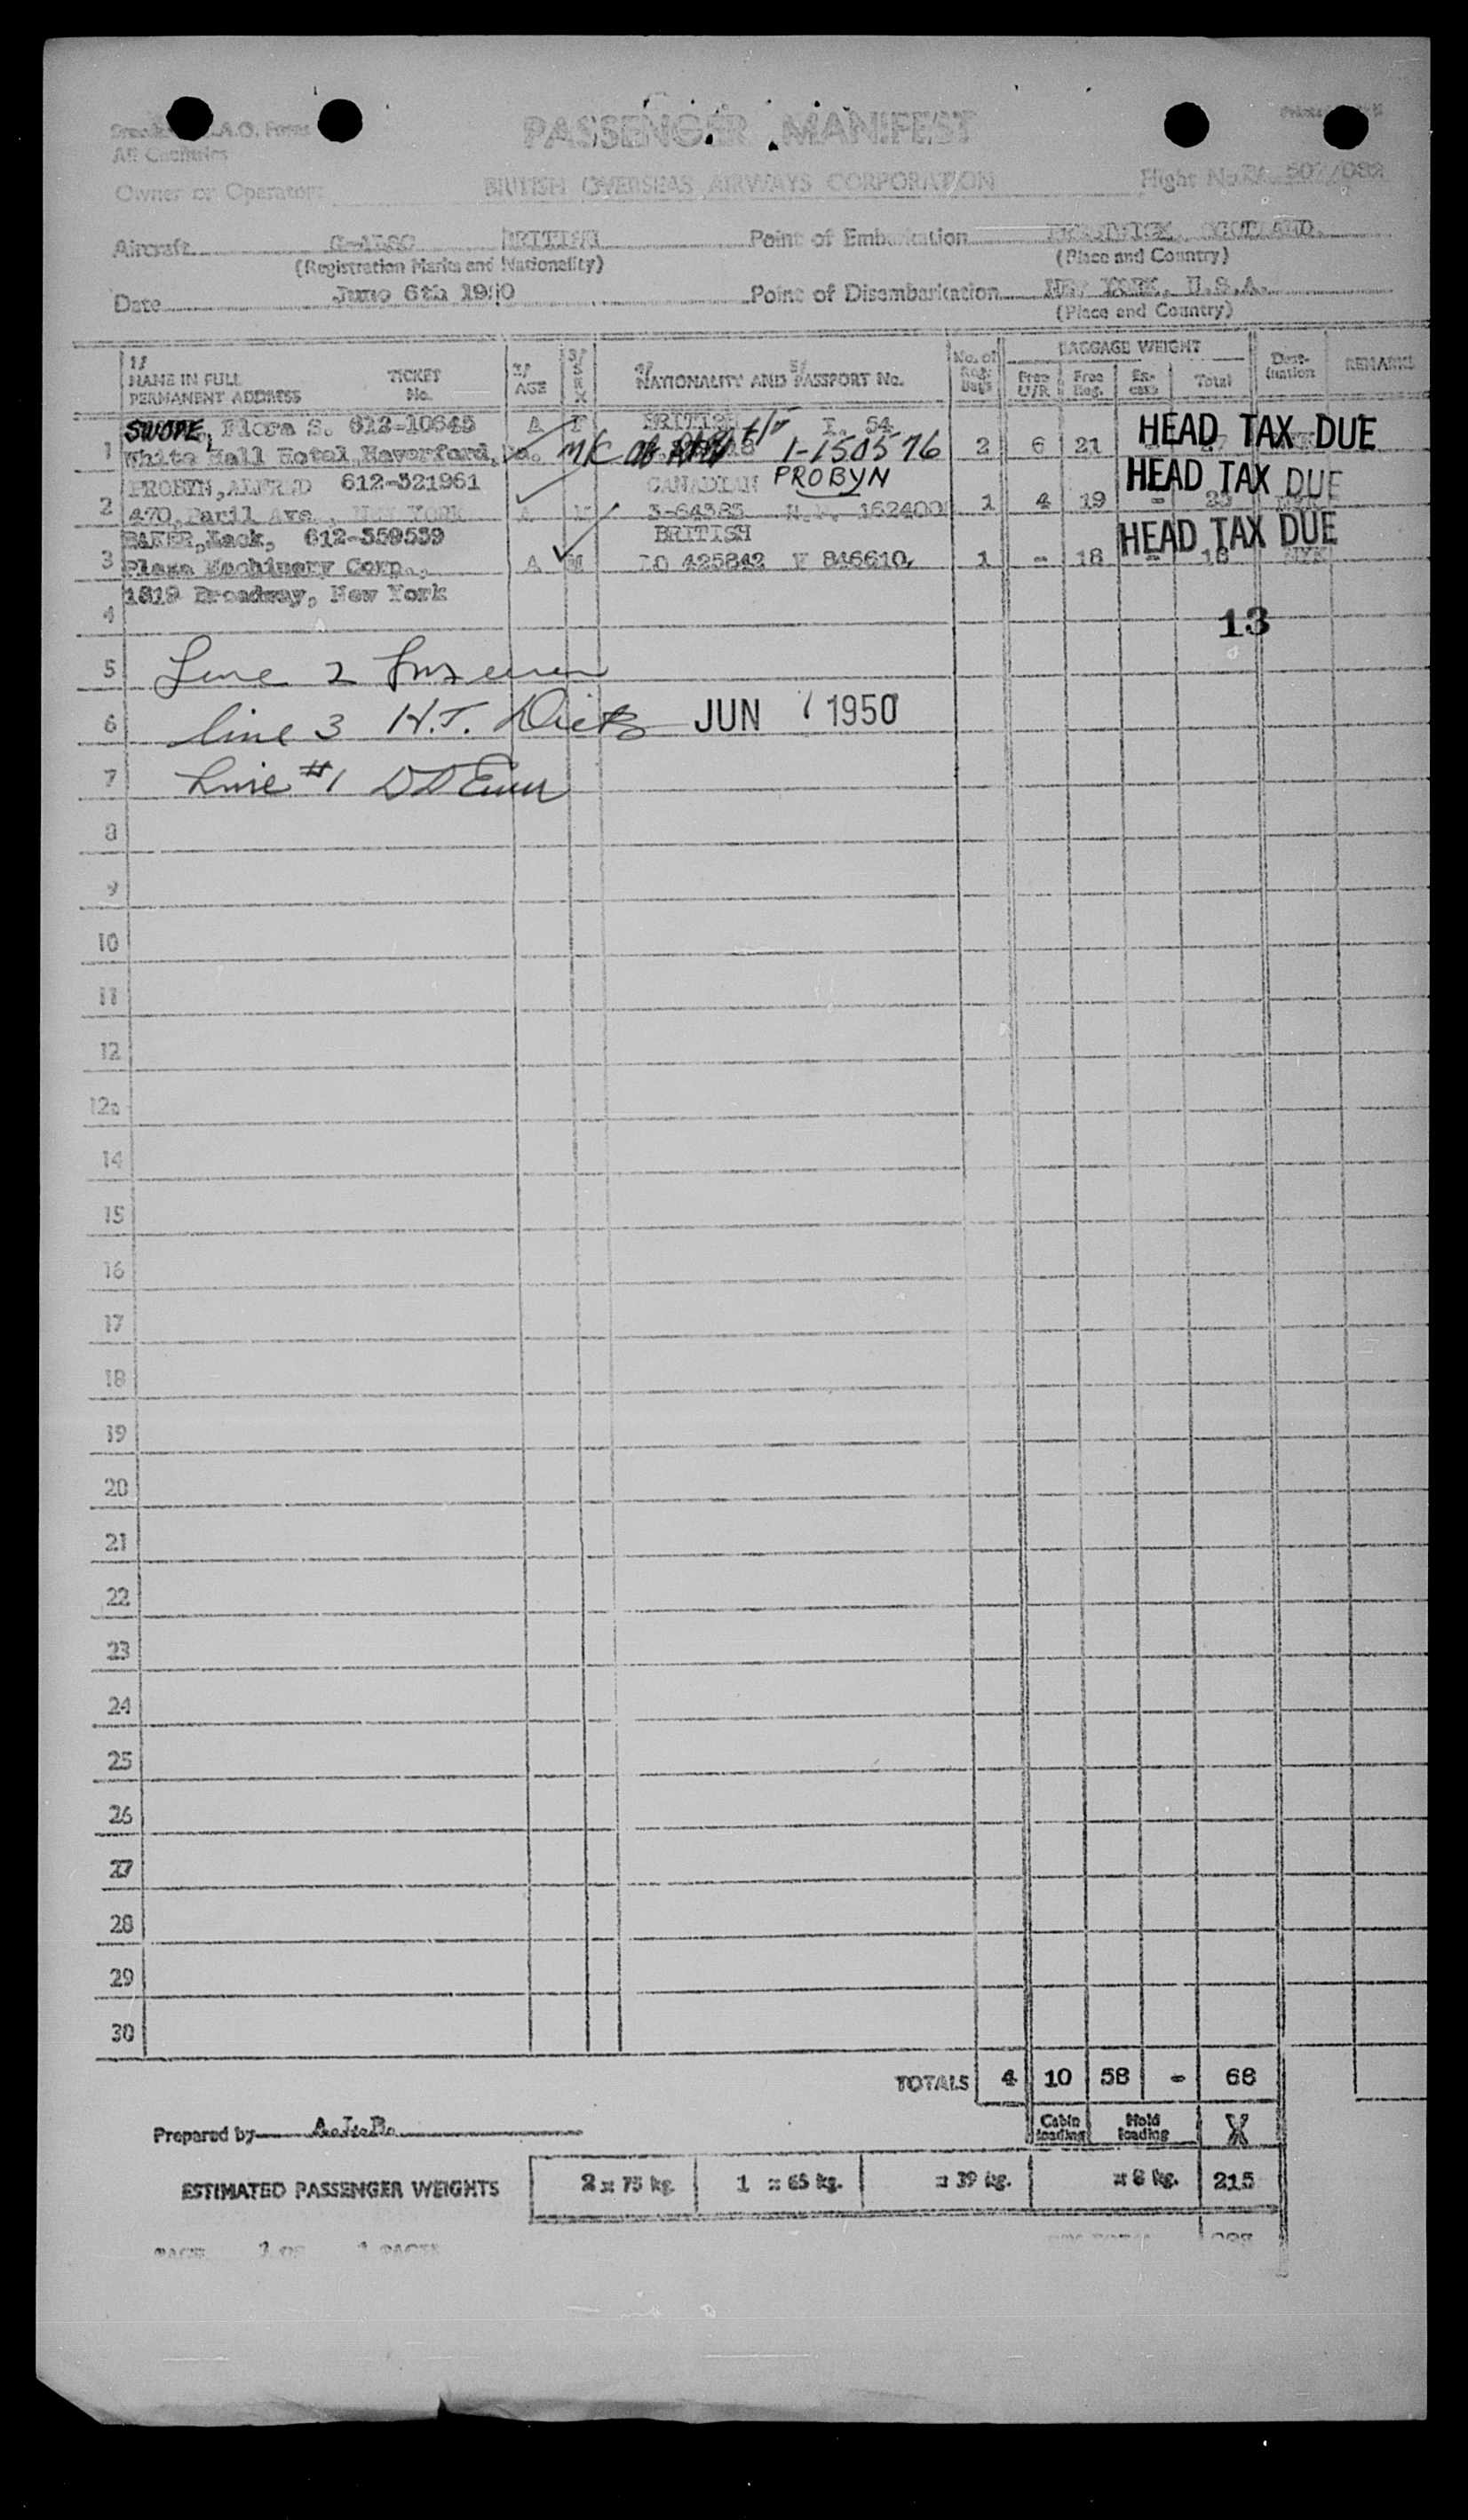 PASSENGER MANIFEST
All Countries
Owner or Operator: BRITISH OVERSEAS AIRWAYS CORPORATION Flight No.
Aircraft BRITISH Point of Embarkation PRESTWICK, SCOTLAND.
(Registration Marks and Nationality) (Place and Country)
Date June 6th 1950 Point of Disembarkation NEW YORK, U.S.A.
(Place and Country)
1/ NAME IN FULL PERMANENT ADDRESS TICKET No. AGE 3/ SEX 4/ NATIONALITY AND 5/ PASSPORT No. No. of BAGGAGE WEIGHT Free U/R Free Reg. Ex-cess Total Dest-ination REMARKS
SWOPE, Flora S. 612-10645 A F BRITISH I. 54
1 White Hall Hotel, Haverford, Pa. 1-150576 2 6 21 HEAD TAX DUE
PROBYN, ALFRED 612-321961 CANADIAN PROBYN
2 470, Park Ave., NEW YORK A M 3-64383 162400 1 4 19 - 23 HEAD TAX DUE
BAKER, Mack, 612-359539 BRITISH
3 Plaza Machinery Corp., A M LO 425842 V 846610. 1 - 18 - 18 NYK HEAD TAX DUE
1819 Broadway, New York
4 13
5 Line 2
6 Line 3 H.T. Dietz JUN 7 1950
7 Line #1
8
9
10
11
12
12a
14
15
16
17
18
19
20
21
22
23
24
25
26
27
28
29
30
TOTALS 4 10 58 - 68
Prepared by A.L.B. Cabin loading Hold loading X
ESTIMATED PASSENGER WEIGHTS 2 = 75 kg. 1 = 65 kg. = 39 kg. = 8 kg. 215
PAGE 1 OF 1 PAGES